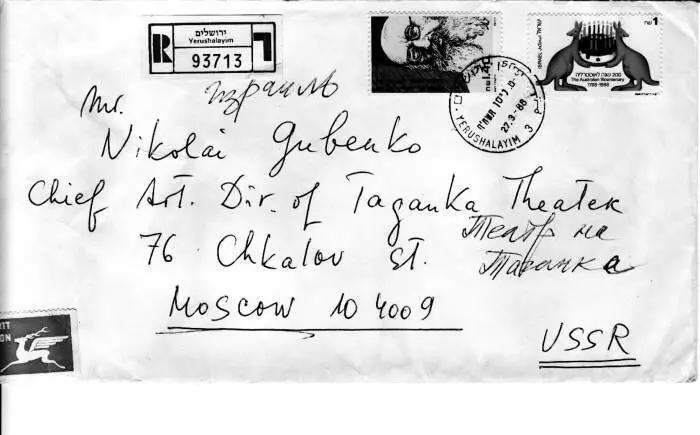 ירושלים
Yerushalayim
R
93713
израиль
YERUSHALAYIM
27.3.-88
3
1
200 שנה לאוסטרליה
The Australian Bicentenary
1788-1988
Mr.
Nikolai Gubenko
Chief Art. Dir. of Taganka Theater
Театр на
76 Chkalov st. Таганка
Moscow 104009
USSR